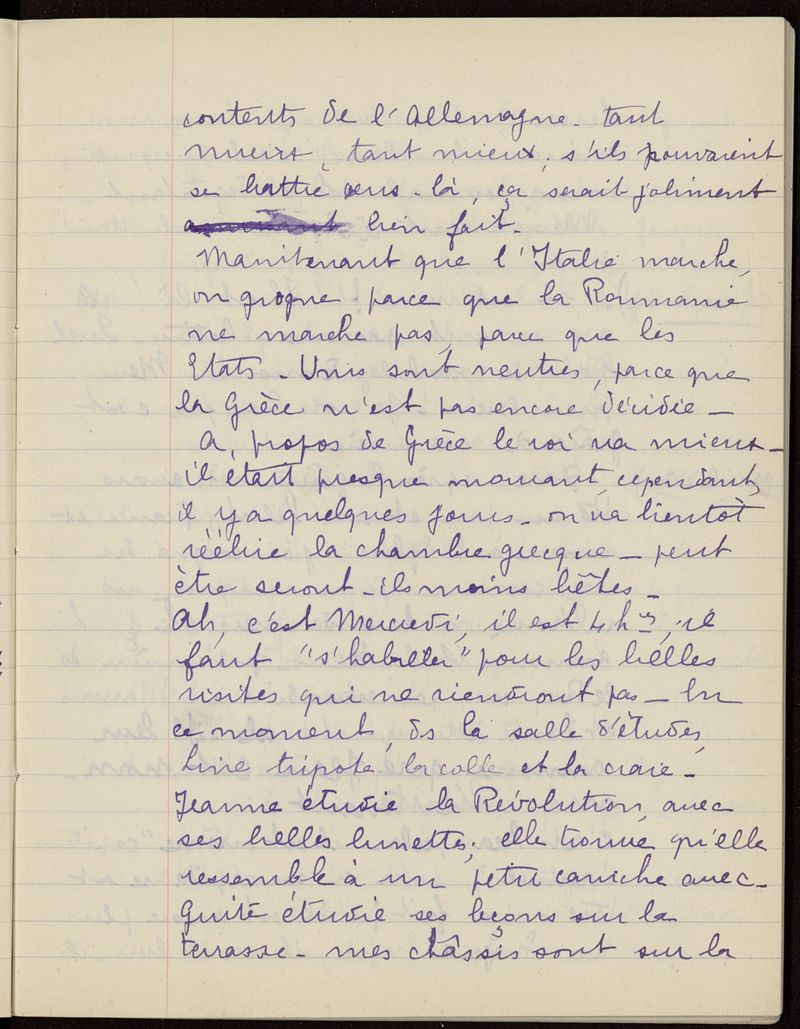 contents de l'Allemagne. tant
mieux, tant mieux, s'ils pouvaient
se battre eux-là, ça serait joliment
amusant bien fait.
Maintenant que l'Italie marche,
on grogne parce que la Roumanie
ne marche pas, parce que les
Etats-Unis sont neutres, parce que
la Grèce n'est pas encore décidée –
A, propos de Grèce le roi va mieux –
il était presque mourant cependant,
il y a quelques jours – on va bientôt
réélire la chambre grecque – peut
être seront-ils moins bêtes –
Ah, c'est Mercredi, il est 4 hres, il
faut "s'habiller" pour les belles
visites qui ne viendront pas – En
ce moment, ds la salle d'études,
Line tripote la colle et la craie –
Jeanne étudie la Révolution, avec
ses belles lunettes; elle trouve qu'elle
ressemble à un petit caniche avec –
Guite étudie ses leçons sur la
terrasse – mes châssis sont sur la